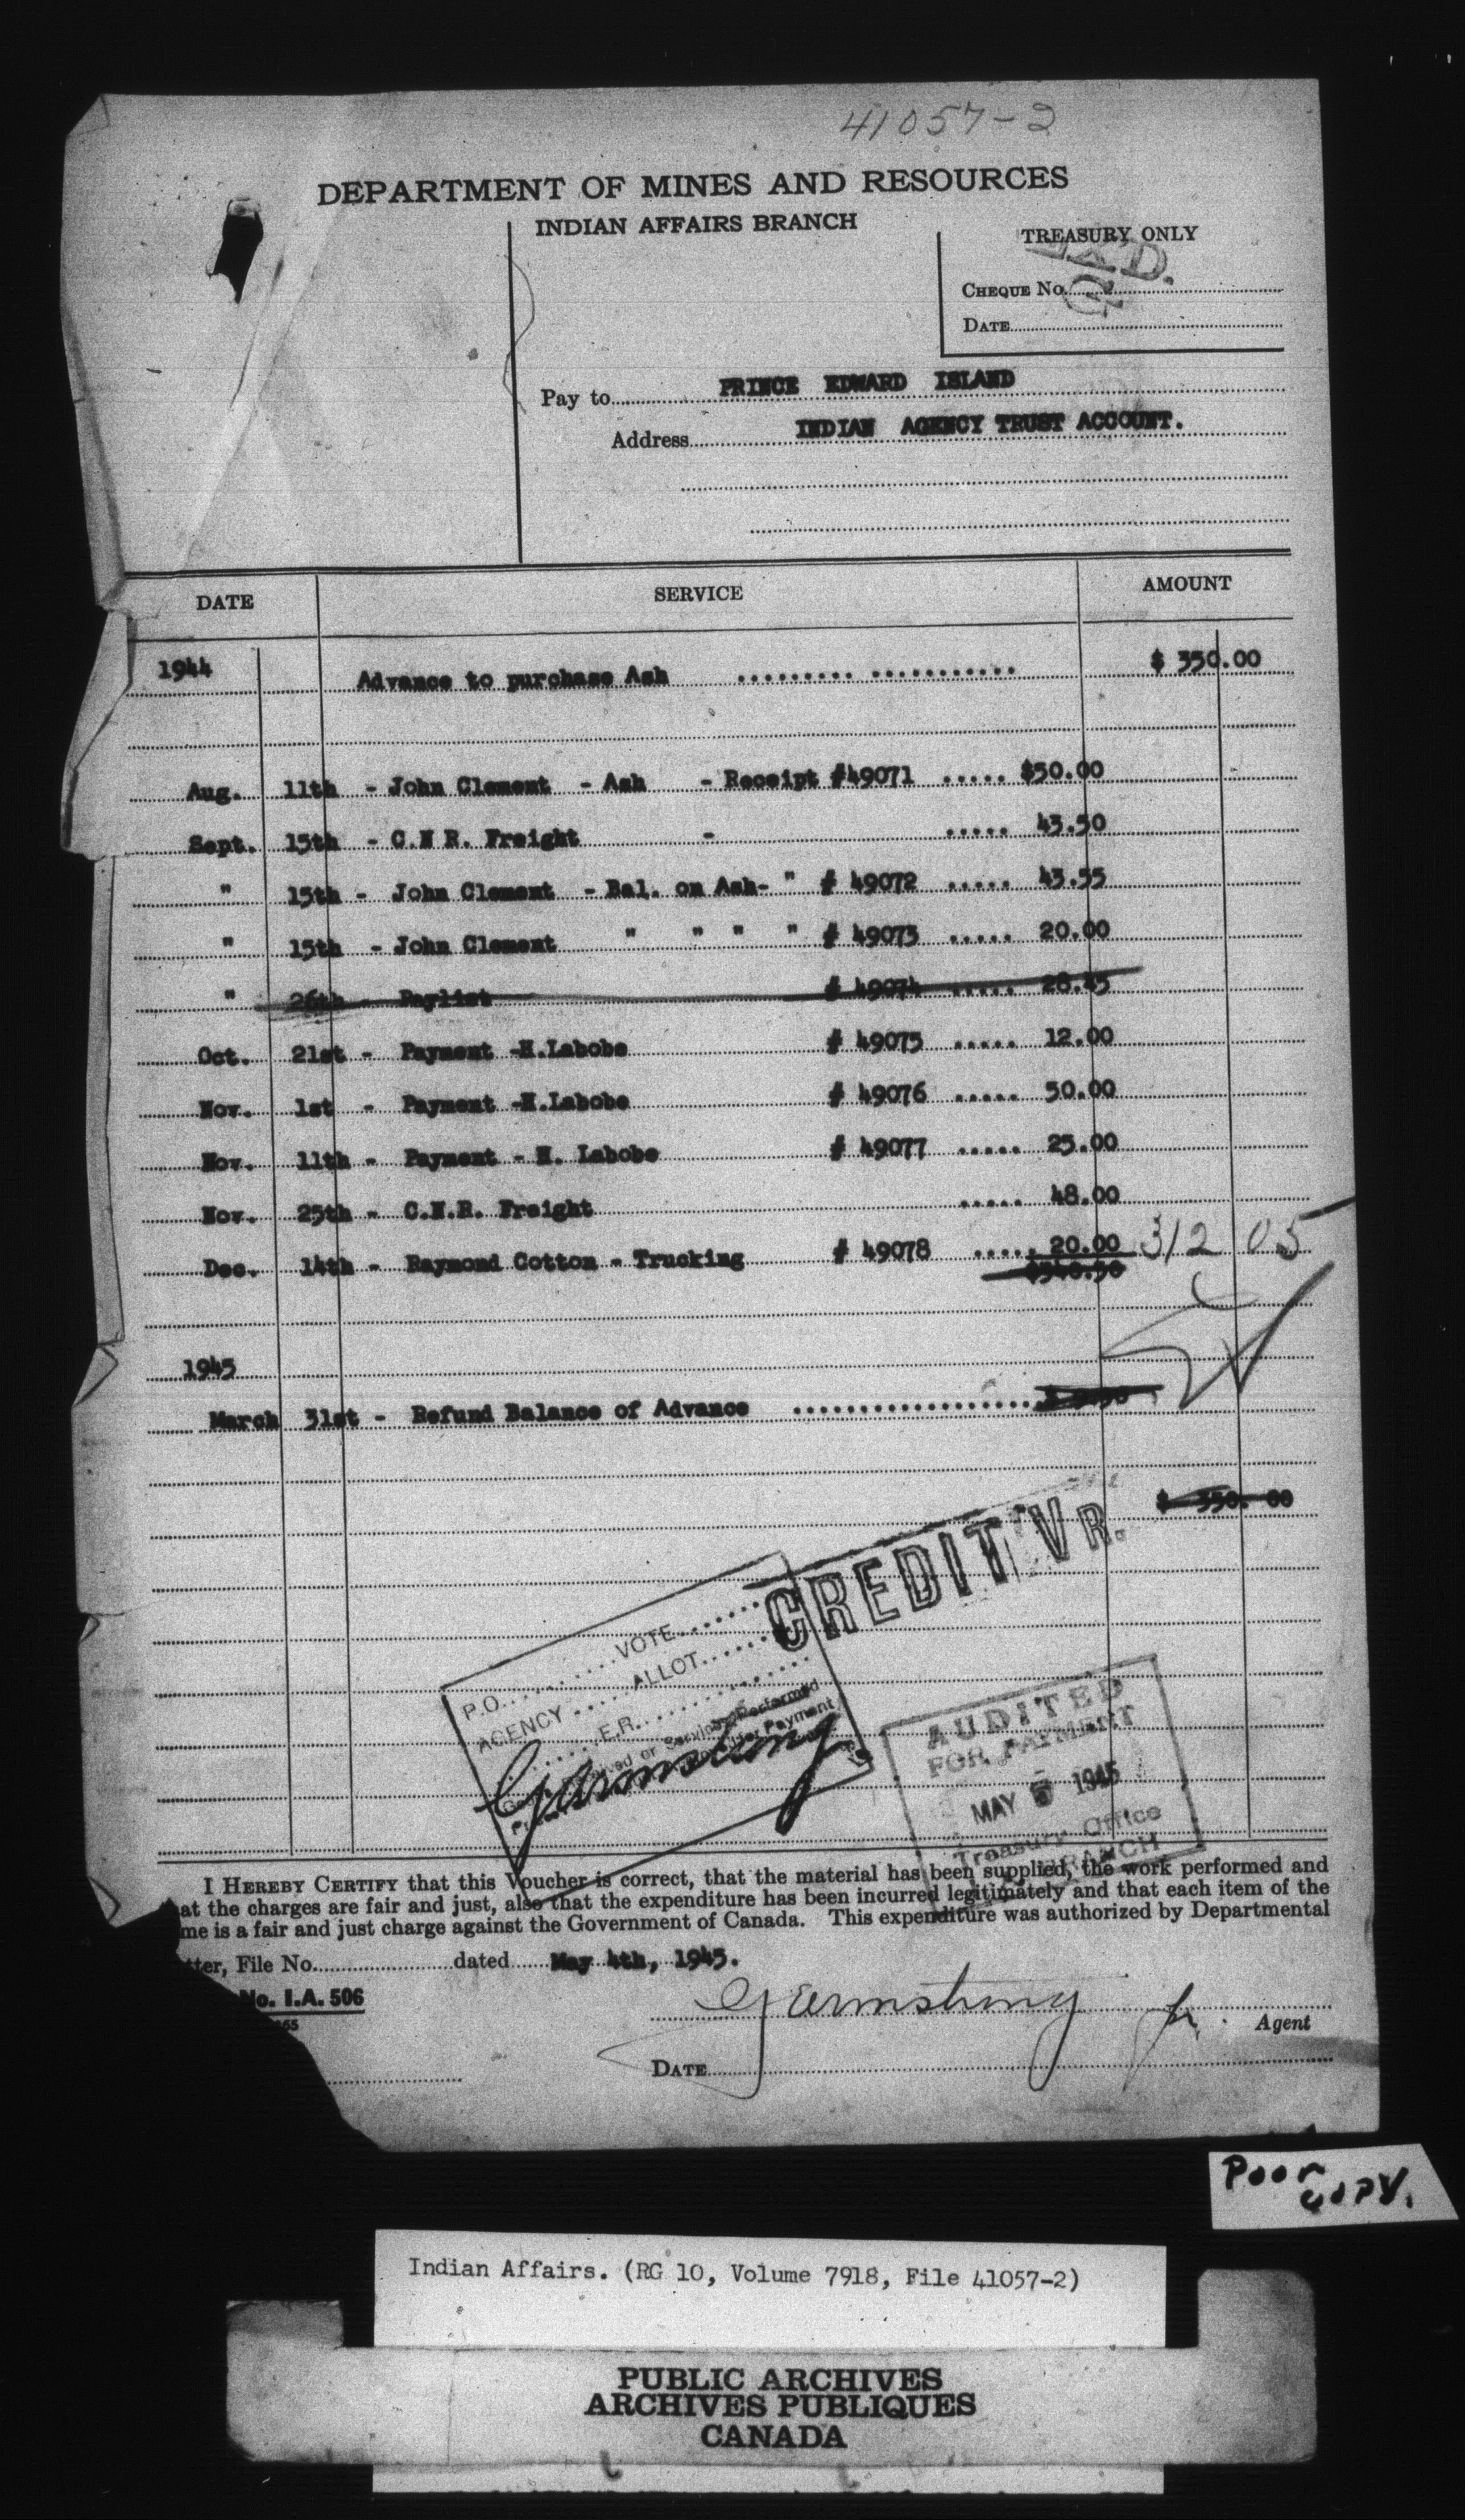 41057-2
DEPARTMENT OF MINES AND RESOURCES
INDIAN AFFAIRS BRANCH
TREASURY ONLY
CHEQUE No.
DATE
Pay to PRINCE EDWARD ISLAND
Address INDIAN AGENCY TRUST ACCOUNT.
DATE SERVICE AMOUNT
1944 Advance to purchase Ash .................... $ 350.00
Aug. 11th - John Clement - Ash - Receipt #49071 ..... $50.00
Sept. 15th - C.N R. Freight - ..... 43.50
" 15th - John Clement - Bal. on Ash- " # 49072 ..... 43.55
" 15th - John Clement " " " " # 49073 ..... 20.00
" 26th - Paylist # 49074 ..... 28.45
Oct. 21st - Payment -H.Labobe # 49075 ..... 12.00
Nov. 1st - Payment -H.Labobe # 49076 ..... 50.00
Nov. 11th - Payment - H. Labobe # 49077 ..... 25.00
Nov. 25th - C.N.R. Freight ..... 48.00
Dec. 14th - Raymond Cotton - Trucking # 49078 ..... 20.00 312 05
$340.50
1945
March 31st - Refund Balance of Advance ...................
$ 350. 00
CREDIT VR.
P.O. VOTE
AGENCY ALLOT.
E.R.
or Services Performed
for Payment
GArmstrong
AUDITED
FOR PAYMENT
MAY 5 1945
Treasury Office
BRANCH
I HEREBY CERTIFY that this Voucher is correct, that the material has been supplied, the work performed and
at the charges are fair and just, also that the expenditure has been incurred legitimately and that each item of the
me is a fair and just charge against the Government of Canada. This expenditure was authorized by Departmental
tter, File No. dated May 4th, 1945.
No. I.A. 506
GArmstrong
Agent
DATE
Poor
copy.
Indian Affairs. (RG 10, Volume 7918, File 41057-2)
PUBLIC ARCHIVES
ARCHIVES PUBLIQUES
CANADA